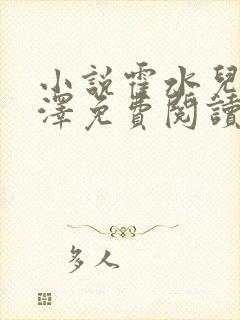 小說霍水兒
澤免費閱讀
多人